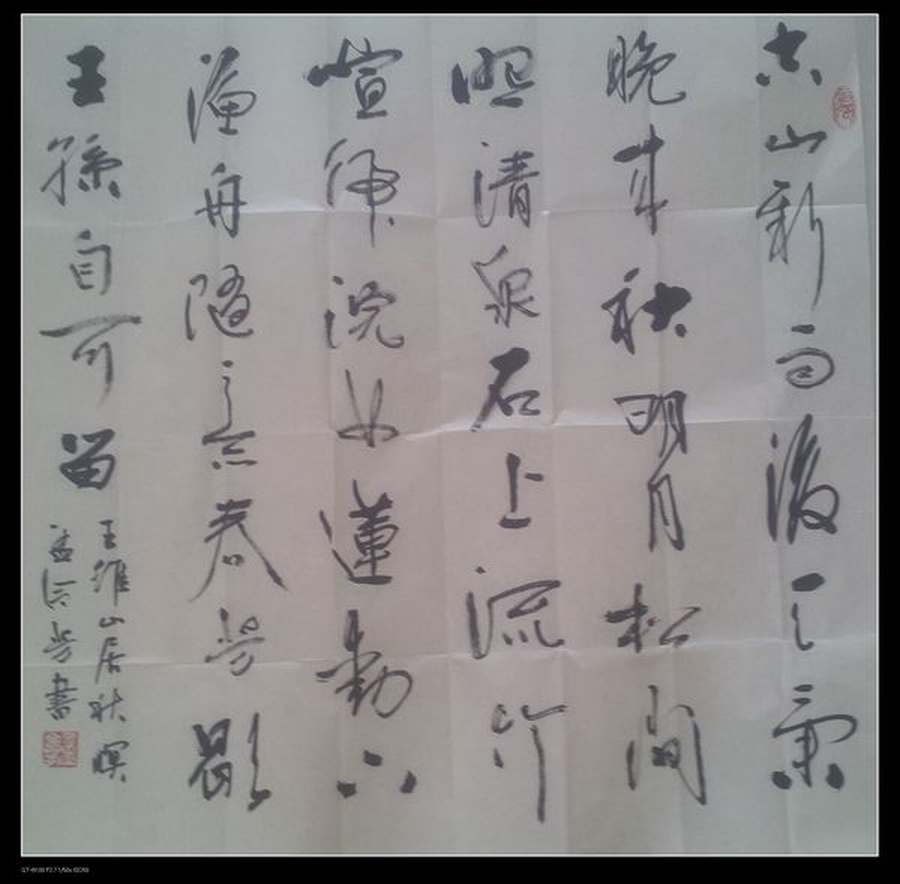 空山新雨後天氣
晚来秋明月松間
照清泉石上流竹
喧歸浣女蓮動下
漁舟隨意春芳歇
王孫自可留
王維山居秋暝
孟芳書